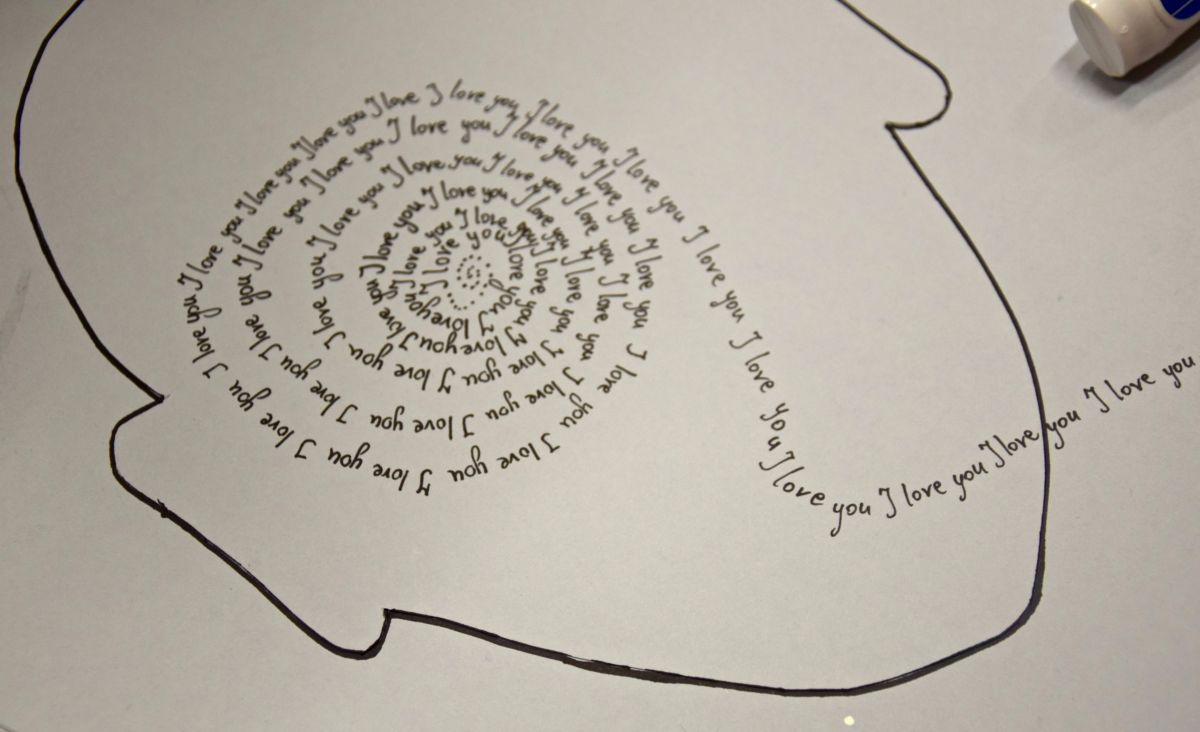 I love you I love you I love you I love you I love you I love you I love you I love you I love you I love you I love you I love you I love you I love you I love you I love you I love you I love you I love you I love you I love you I love you I love you I love you I love you I love you I love you I love you I love you I love you I love you I love you I love you I love you I love you I love you I love you I love you I love I love you I love you I love you I love you I love you I love you I love you I love you I love you